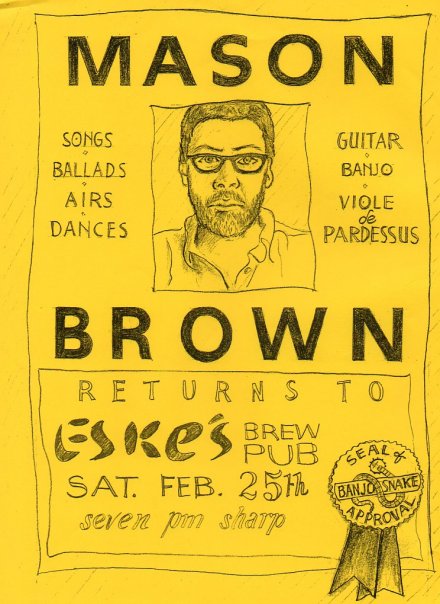 MASON
SONGS
BALLADS
AIRS
DANCES
GUITAR
BANJO
VIOLE
de
PARDESSUS
BROWN
RETURNS TO
Eske's BREW
PUB
SAT. FEB. 25th
seven pm sharp
SEAL of
BANJO SNAKE
APPROVAL